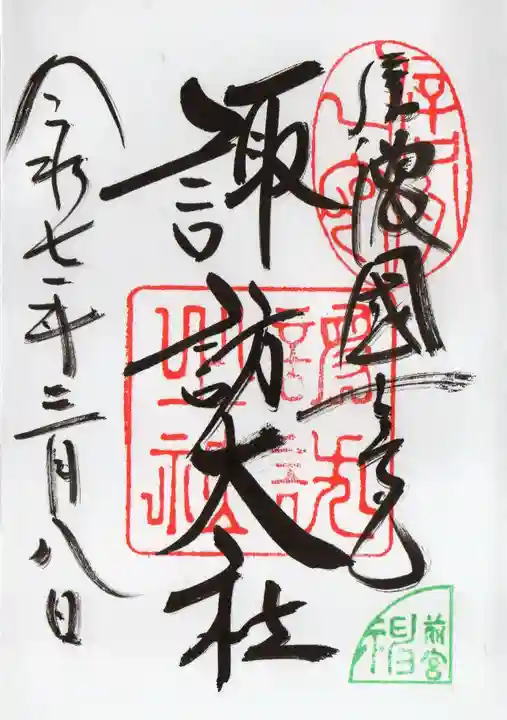 信濃國一之宮
諏訪大社
令和七年三月八日
前宮